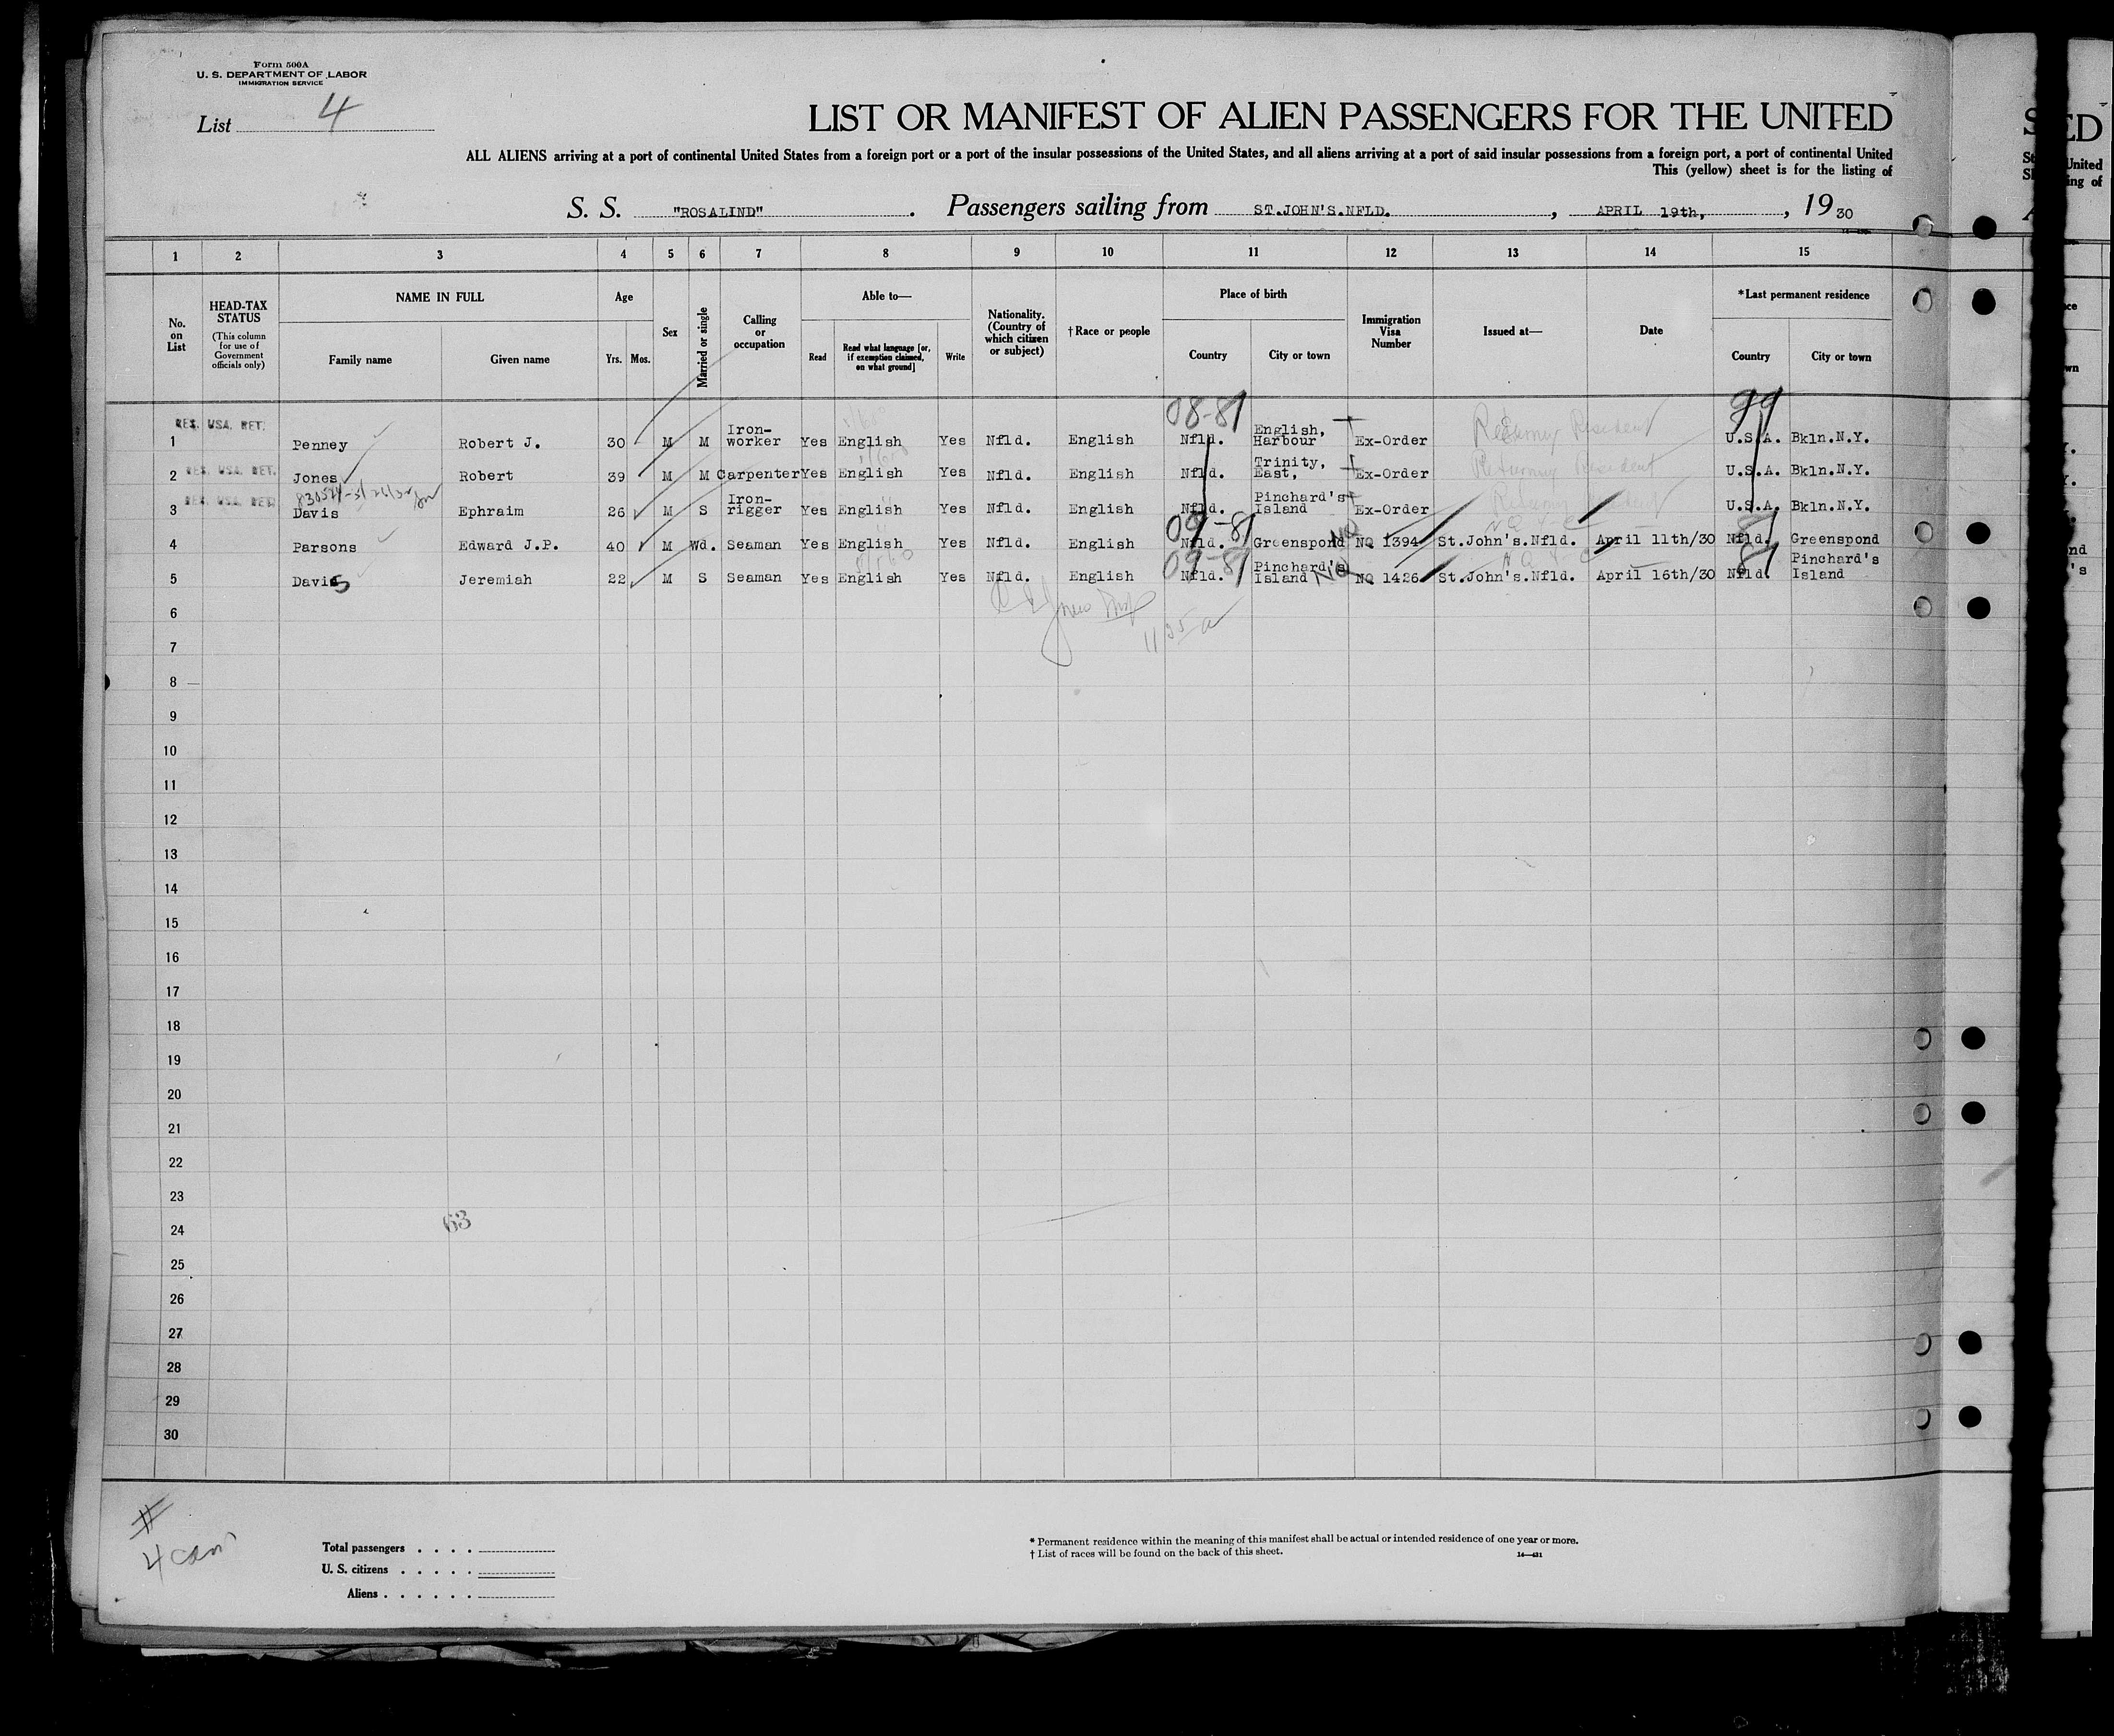 Form 500A
U. S. DEPARTMENT OF LABOR
IMMIGRATION SERVICE
List 4
LIST OR MANIFEST OF ALIEN PASSENGERS FOR THE UNITED
ALL ALIENS arriving at a port of continental United States from a foreign port or a port of the insular possessions of the United States, and all aliens arriving at a port of said insular possessions from a foreign port, a port of continental United
This (yellow) sheet is for the listing of
S. S. "ROSALIND". Passengers sailing from ST.JOHN'S.NFLD., APRIL 19th, , 19 30
1 2 3 4 5 6 7 8 9 10 11 12 13 14 15
No. on List
HEAD-TAX STATUS
(This column for use of Government officials only)
NAME IN FULL
Family name Given name
Age
Yrs. Mos.
Sex
Married or single
Calling or occupation
Able to—
Read Read what language [or, if exemption claimed, on what ground] Write
Nationality. (Country of which citizen or subject)
† Race or people
Place of birth
Country City or town
Immigration Visa Number
Issued at—
Date
* Last permanent residence
Country City or town
08-81 99
RES. USA. RET.
1 Penney Robert J. 30 M M Iron-worker Yes English Yes Nfld. English Nfld. English, Harbour Ex-Order Returning Resident U.S.A. Bkln.N.Y.
RES. USA. RET.
2 Jones Robert 39 M M Carpenter Yes English Yes Nfld. English Nfld. Trinity, East, Ex-Order Returning Resident U.S.A. Bkln.N.Y.
RES. USA. RET.
3 Davis Ephraim 26 M S Iron-rigger Yes English Yes Nfld. English Nfld. Pinchard's Island Ex-Order Returning Resident U.S.A. Bkln.N.Y.
09-81 81
4 Parsons Edward J.P. 40 M Wd. Seaman Yes English Yes Nfld. English Nfld. Greenspond NQ 1394 St.John's.Nfld. April 11th/30 Nfld. Greenspond
09-81 81
5 Davis Jeremiah 22 M S Seaman Yes English Yes Nfld. English Nfld. Pinchard's Island NQ 1426 St.John's.Nfld. April 16th/30 Nfld. Pinchard's Island
6
7
8
9
10
11
12
13
14
15
16
17
18
19
20
21
22
23
24
63
25
26
27
28
29
30
Total passengers . . . .
U. S. citizens . . . . .
Aliens . . . . . .
* Permanent residence within the meaning of this manifest shall be actual or intended residence of one year or more.
† List of races will be found on the back of this sheet.
14—421